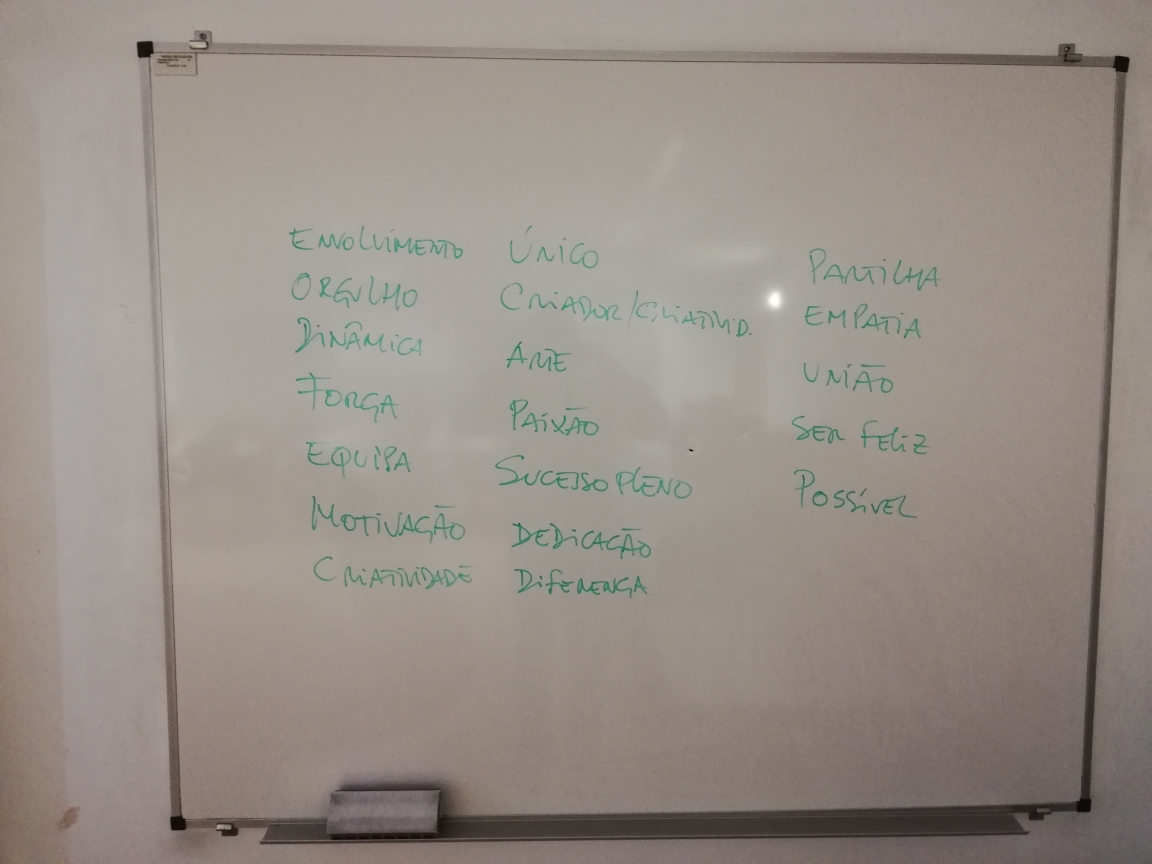 ENVOLVIMENTO
ORGULHO
DINÂMICA
FORÇA
EQUIPA
MOTIVAÇÃO
CRIATIVIDADE
ÚNICO
CRIADOR/CRIATIVID.
ARTE
PAIXÃO
SUCESSO PLENO
DEDICAÇÃO
DIFERENÇA
PARTILHA
EMPATIA
UNIÃO
SER FELIZ
POSSÍVEL